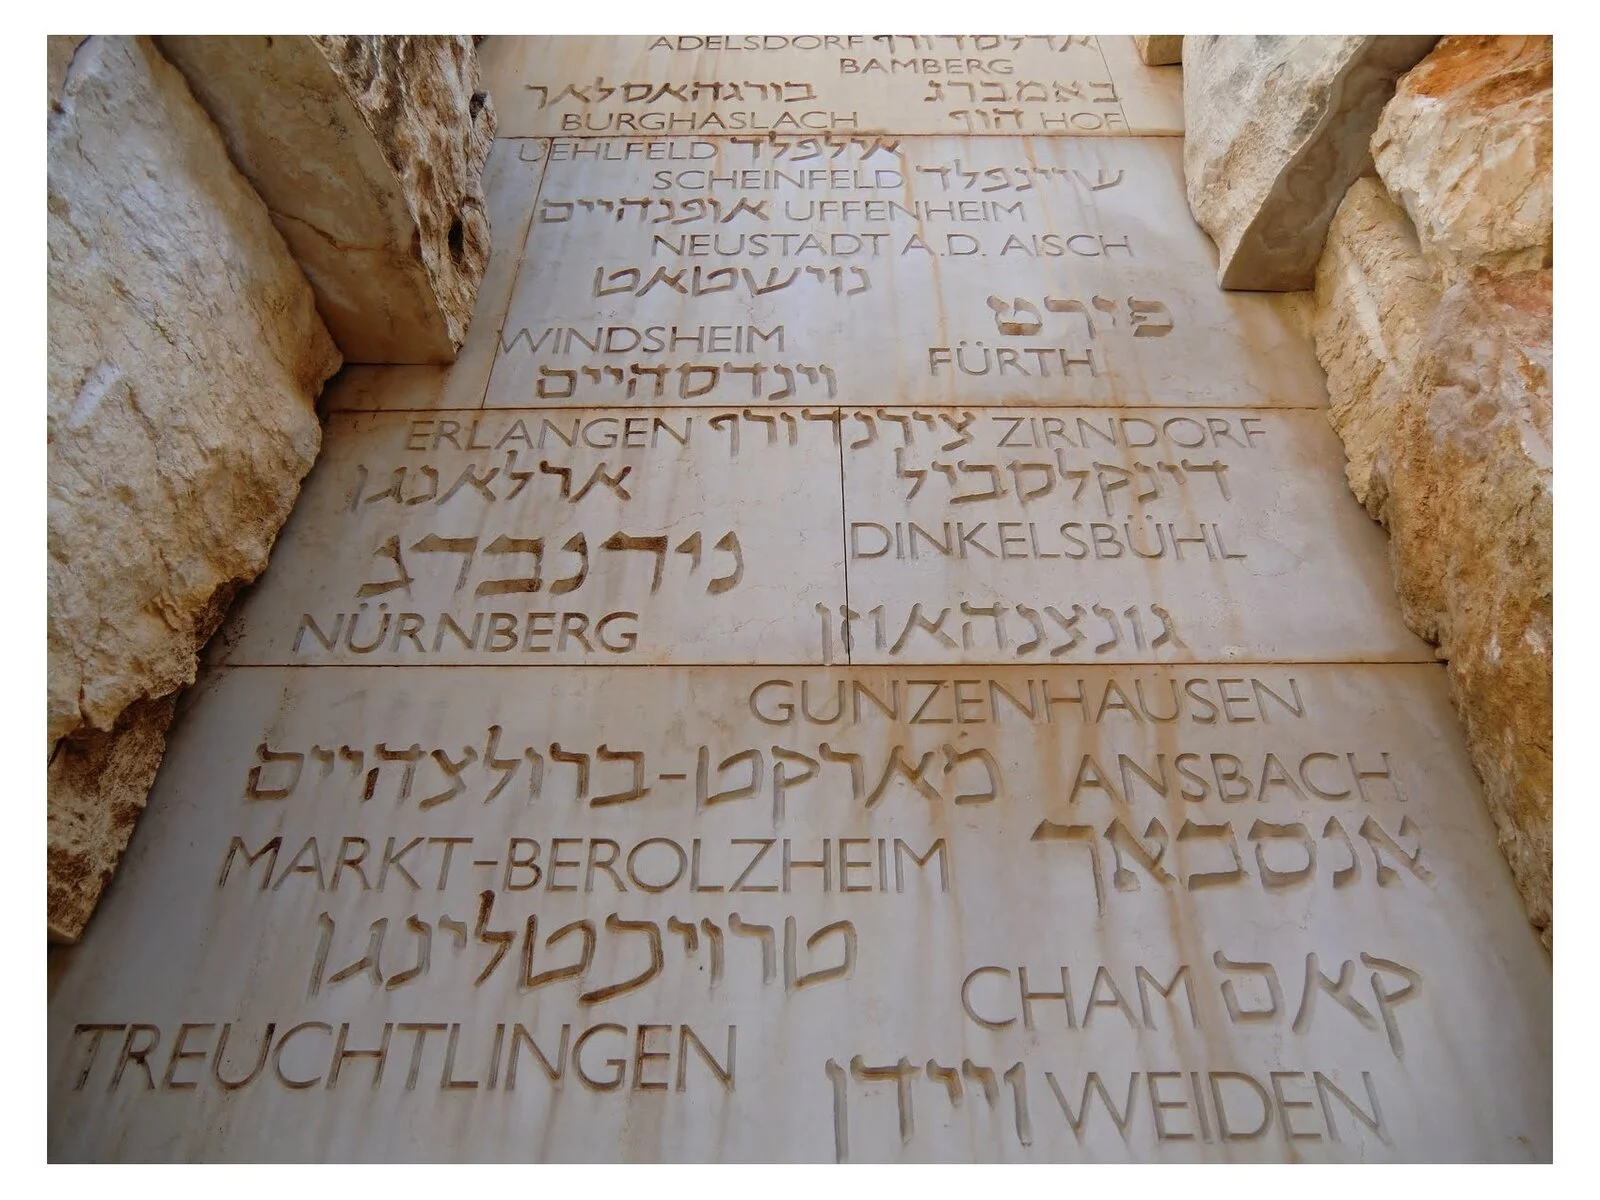 ADELSDORF אדלסדורף
BAMBERG
בורגהאסלאך באמברג
BURGHASLACH הוף HOF
UEHLFELD אילפלד
SCHEINFELD שיינפלד
אופנהיים UFFENHEIM
NEUSTADT A.D. AISCH
נוישטאט
פירט
WINDSHEIM FÜRTH
וינדסהיים
ERLANGEN צירנדורף ZIRNDORF
ארלאנגן דינקלסביל
נירנברג DINKELSBÜHL
NÜRNBERG גונצנהאוזן
GUNZENHAUSEN
מארקט-ברולצהיים ANSBACH
MARKT-BEROLZHEIM אנסבאך
טרויכטלינגן
CHAM קאם
TREUCHTLINGEN
ויידן WEIDEN